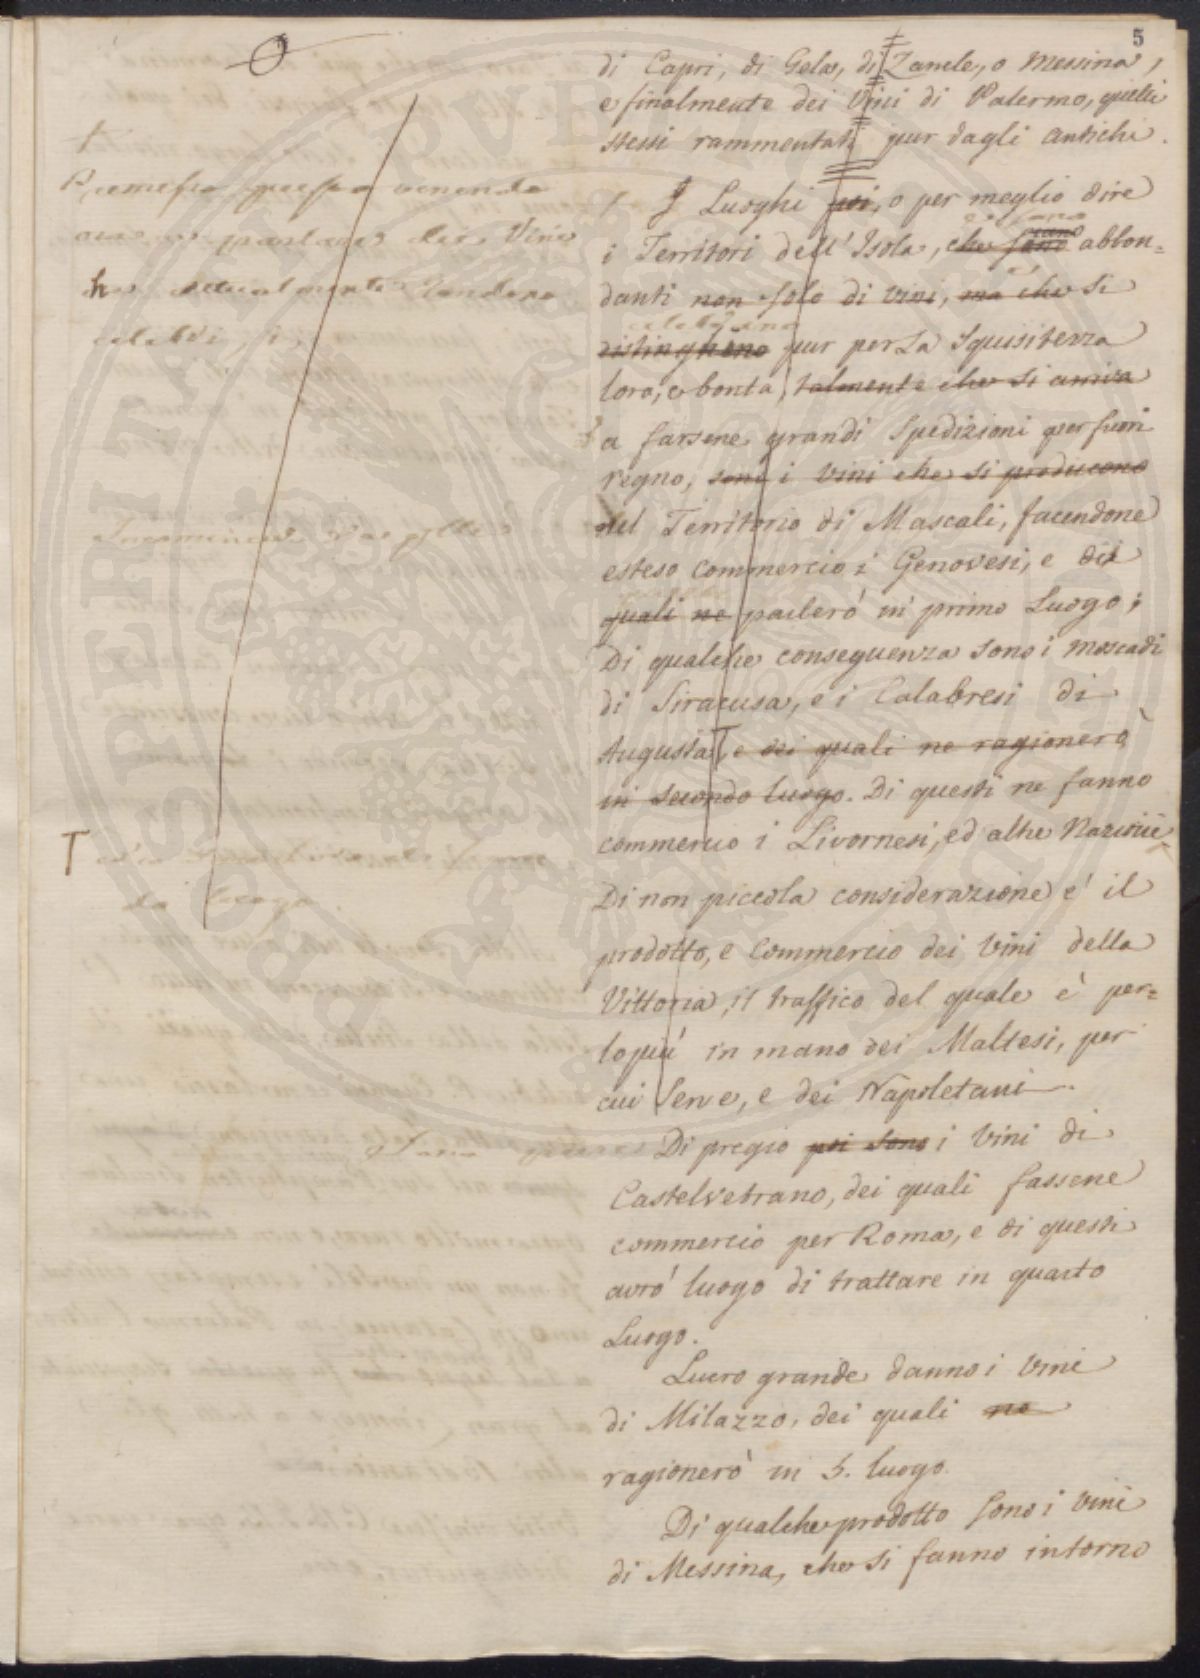 5
di Capri, di Gela, di Zancle, o Messina,
e finalmente dei Vini di Palermo, quelli
stessi rammentati pur dagli antichi.
I Luoghi poi, o per meglio dire
i Territori dell'Isola, che sono abbon=
danti non solo di vini, ma che si
distinguono pur per la squisitezza
loro, e bontà, talmente che si arriva
a farsene grandi spedizioni per fuori
regno, sono i vini che si producono
nel Territorio di Mascali, facendone
esteso commercio i Genovesi, e dei
quali ne parlerò in primo Luogo;
Di qualche conseguenza sono i moscadi
di Siracusa, e i Calabresi di
Augusta, e dei quali ne ragionerò
in secondo luogo. Di questi ne fanno
commercio i Livornesi, ed altre Nazioni
Di non piccola considerazione è il
prodotto, e commercio dei vini della
Vittoria, il traffico del quale è per=
lopiù in mano dei Maltesi, per
cui serve, e dei Napoletani.
Di pregio poi sono i Vini di
Castelvetrano, dei quali fassene
commercio per Roma, e di questi
avrò luogo di trattare in quarto
Luogo.
Lucro grande danno i Vini
di Milazzo, dei quali ne
ragionerò in 5. luogo.
Di qualche prodotto sono i Vini
di Messina, che si fanno intorno
Premesso questo venendo
ora a parlare dei Vini
che attualmente
celebri
T
da Luogo